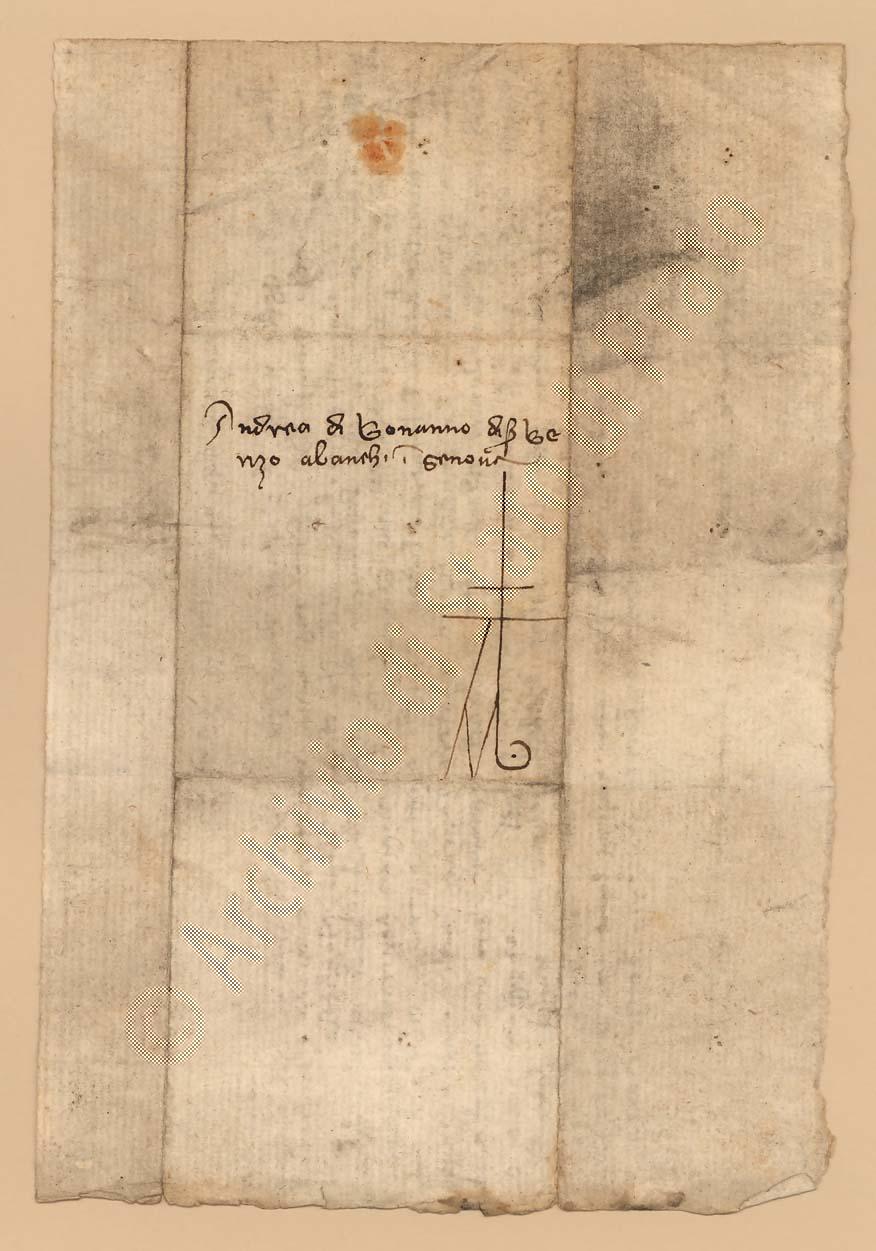 Andrea di Bonanno di ß Be
nizo abanchi i genova
© Archivio di Stato di Prato